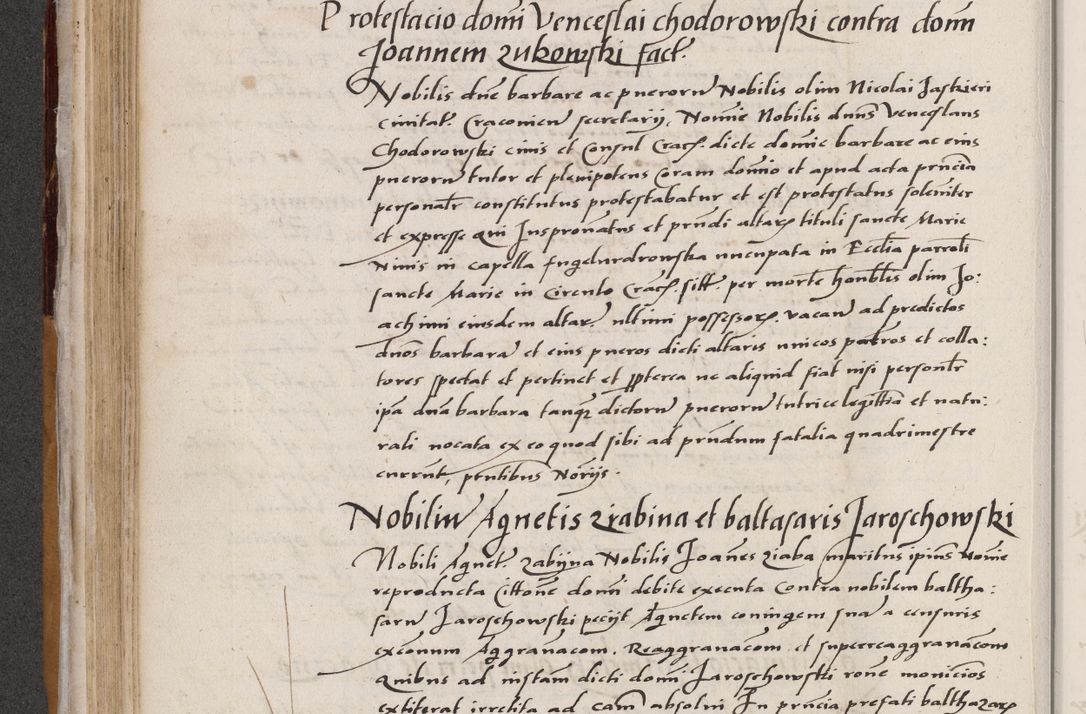 Protestacio domi Venceslai chodorowski contra domn
Joannem zukowski fact.
Nobilis dne barbare ac puerorum Nobilis olim Nicolai Jaskieri
civitat. Cracovien secretarii, Nomine Nobilis dnus Venceslaus
Chodorowski civis et Consul Crac. dicte domine barbare ac eius
puerorum tutor et plenipotens coram domino et apud acta prncia
personalr constitutus protestabatur et est protestatus solenniter
et expresse qui Juspronatus et prndi altaris tituli sancte Marie
Nivis in capella nuncupata in Ecclia parroli
sancte Marie in Circulo Crac. sitt. per morte honblis olim Jo:
achimi eiusdem altar. ultimi possessoris vacan ad predictos
dnos barbara et eius pueros dicti altaris unicos patros et colla:
tores spectat et pertinet et ppterea ne aliquid fiat nisi personlr
ipa dna barbara tanq dictorum puerorum tutrice legittia et natu:
rali vocata ex eo quod sibi ad prndum fatalia quadrimestre
current, pntibus Noriis.
Nobilium Agnetis zrabina et baltasaris Jaroschowski
Nobili Agnet. zabijna Nobilis Joanes ziaba maritus ipius Nomine
reproducta Cittone domi debite executa Contra nobilem baltha:
sarum Jaroschowski peciit Agnetem coniugem sua a censuris
exconum Aggravacom. Reaggravacom. et superreaggravacom
Quibus ad instam dicti domi Jaroschowski rone monicios
extiterat irretita ad cam absolvi In prncia prefati balthazar